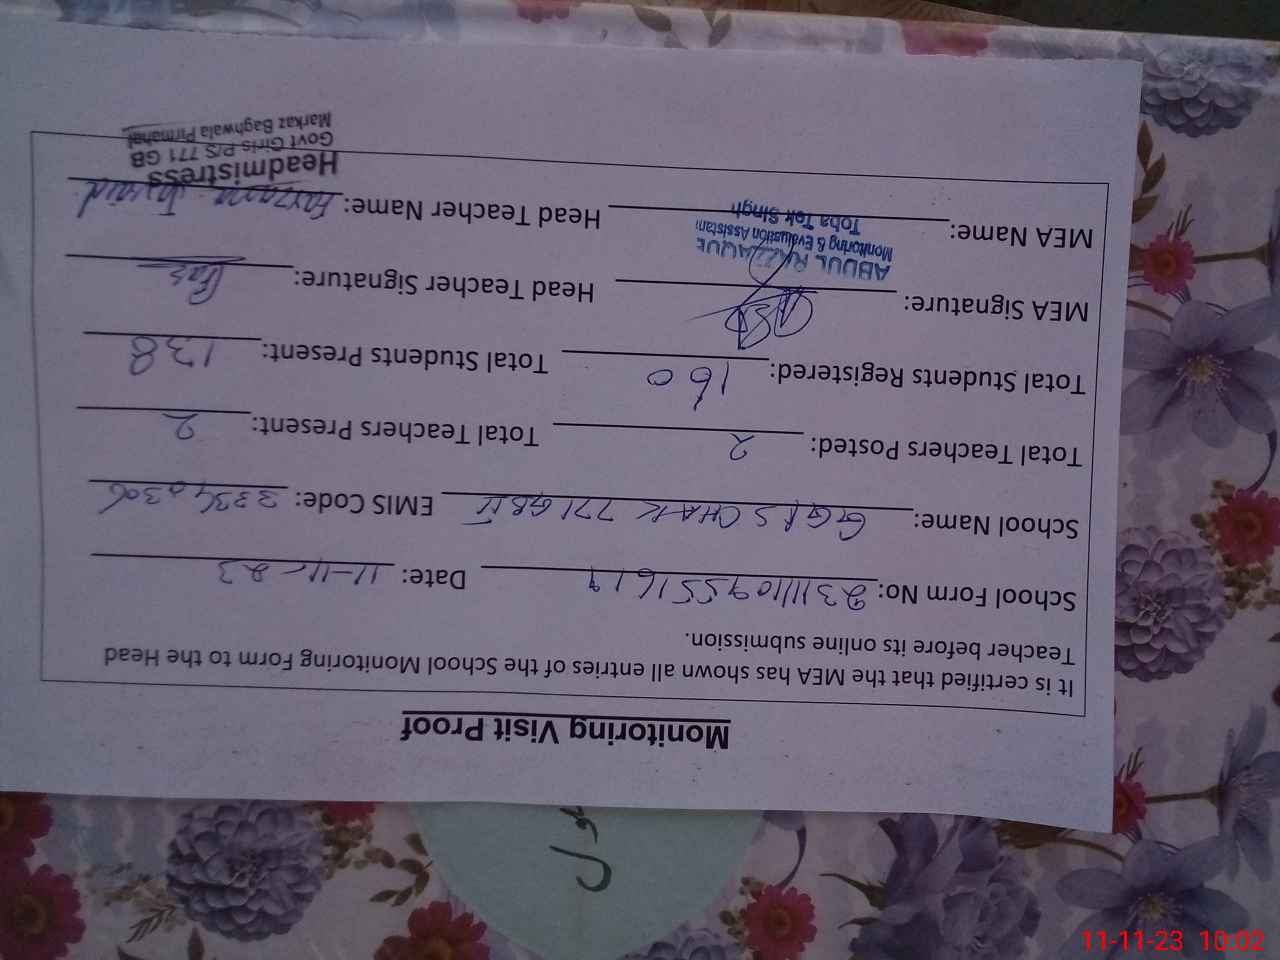 Monitoring Visit Proof
It is certified that the MEA has shown all entries of the School Monitoring Form to the Head
Teacher before its online submission.
School Form No: 231111109551619 Date: 11-11-23
School Name: GGPS CHAK 771 GB II EMIS Code: 33540306
Total Teachers Posted: 2 Total Teachers Present: 2
Total Students Registered: 160 Total Students Present: 138
MEA Signature: Head Teacher Signature:
ABDUL RAZZAQUE
Monitoring & Evaluation Assistant
Toba Tek Singh
MEA Name: Head Teacher Name: Farzana Javaid
Headmistress
Govt Girls P/S 771 GB
Markaz Baghwala Pirmahal
11-11-23 10:02